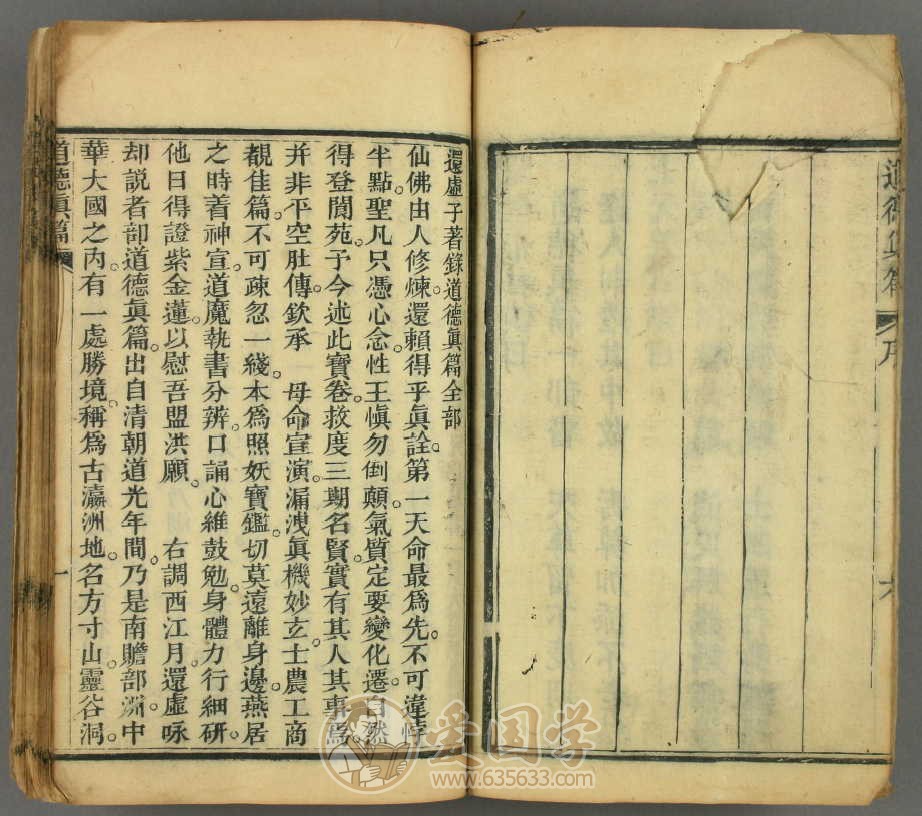 道德真篇
序
六
還虛子著錄道德眞篇全部
仙佛由人修煉。還賴得乎眞詮。第一天命最爲先。不可違悖
半點。聖凡只憑心念。性王愼勿倒顛。氣質定要變化遷。自然
得登閬苑。予今述此寶卷。救度三期名賢。實有其人其事焉。
并非平空肚傳。欽承　母命宣演。漏洩眞機妙玄。士農工商
覩佳篇。不可疎忽一綫。本爲照妖寶鑑。切莫遠離身邊。燕居
之時着神宣。道魔執書分辨。口誦心維鼓勉。身體力行細研。
他日得證紫金蓮。以慰吾盟洪願。　右調西江月。還虛咏
却說者部道德眞篇。出自清朝道光年間。乃是南贍部洲。中
華大國之內。有一處勝境。稱爲古瀛洲地。名方寸山。靈谷洞。
道德眞篇
一
爱国学
www.635633.com